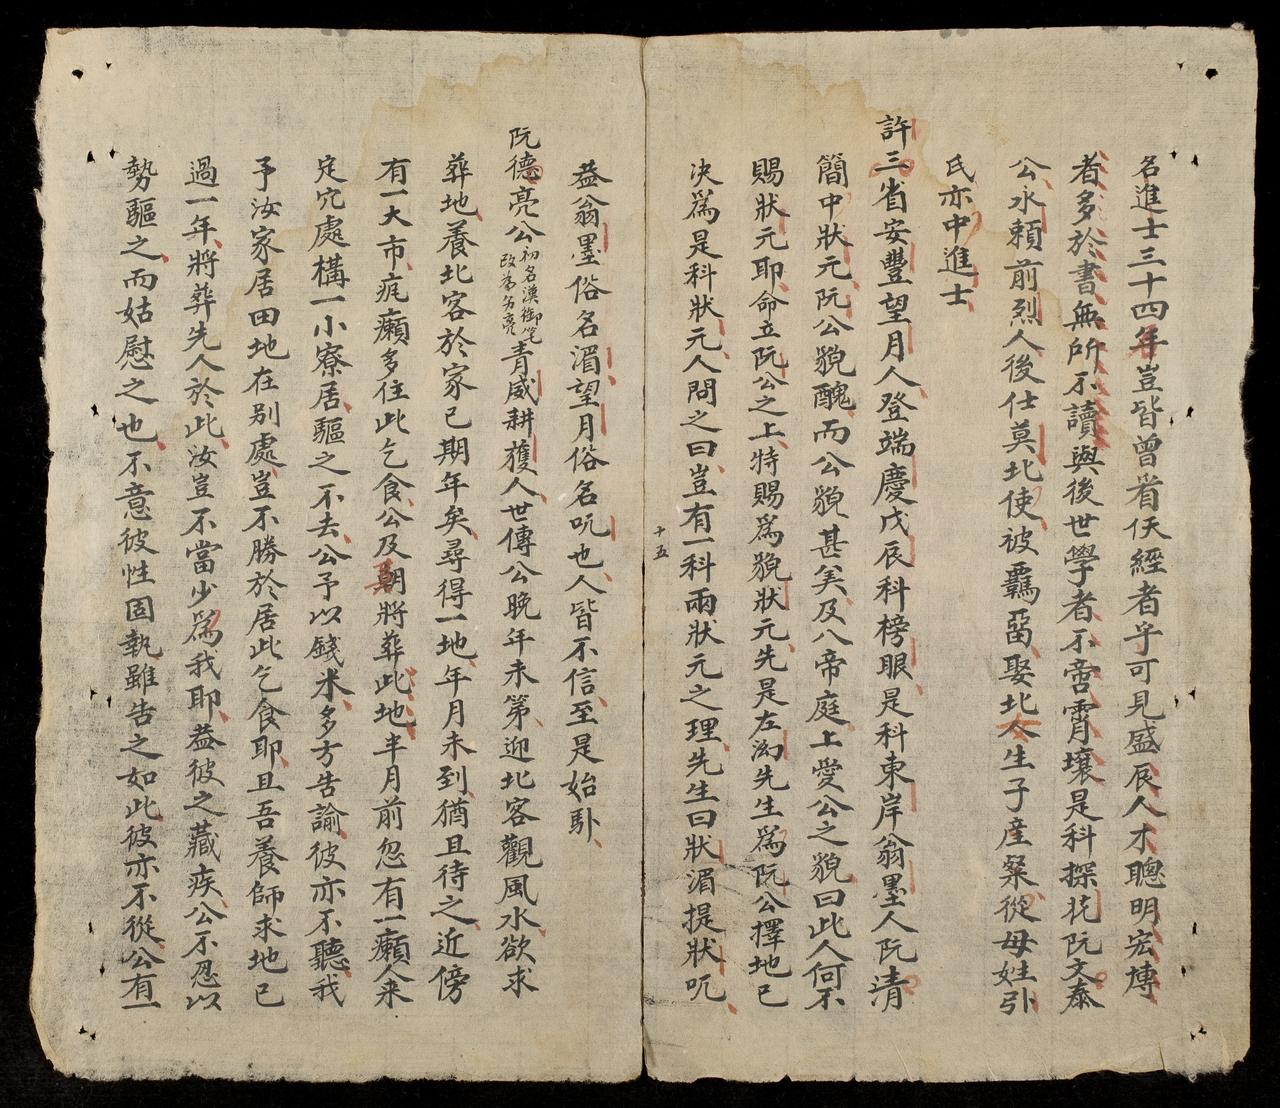 名進士三十四年豈皆曾省伕經者乎可見盛辰人才聰明宏博
者多於書無所不讀與後世學者不啻霄壤是科探花阮文泰
公水賴前烈人後仕莫北使被羈畱娶北人生子産粲從母姓引
氏亦中進士
許三省安豐望月人登端慶戊辰科榜眼是科東岸翁墨人阮清
簡中狀元阮公貌醜而公貌甚美及入帝庭上愛公之貌曰此人何不
賜狀元耶命立阮公之上特賜爲貌狀元先是左㳓先生爲阮公擇地已
决爲是科狀元人問之曰豈有一科兩狀元之理先生曰狀湄提狀吮
十五
益翁墨俗名湄望月俗名吮也人皆不信至是始卧
阮德亮公初名漠御筆改爲名亮青威耕獲人世傳公晚年未第迎北客觀風水欲求
葬地養北客於家已期年矣尋得一地年月未到猶且待之近傍
有一大市疣癩多住此乞食公及朝將葬此地半月前忽有一癩人来
定穴處構一小寮居驅之不去公予以錢米多方告諭彼亦不聽我
予汝家居田地在别處豈不勝於居此乞食耶且吾養師求地已
過一年將葬先人於此汝豈不當少爲我耶益彼之藏疾公不忍以
勢驅之而姑慰之也不意彼性固執雖告之如此彼亦不從公有一